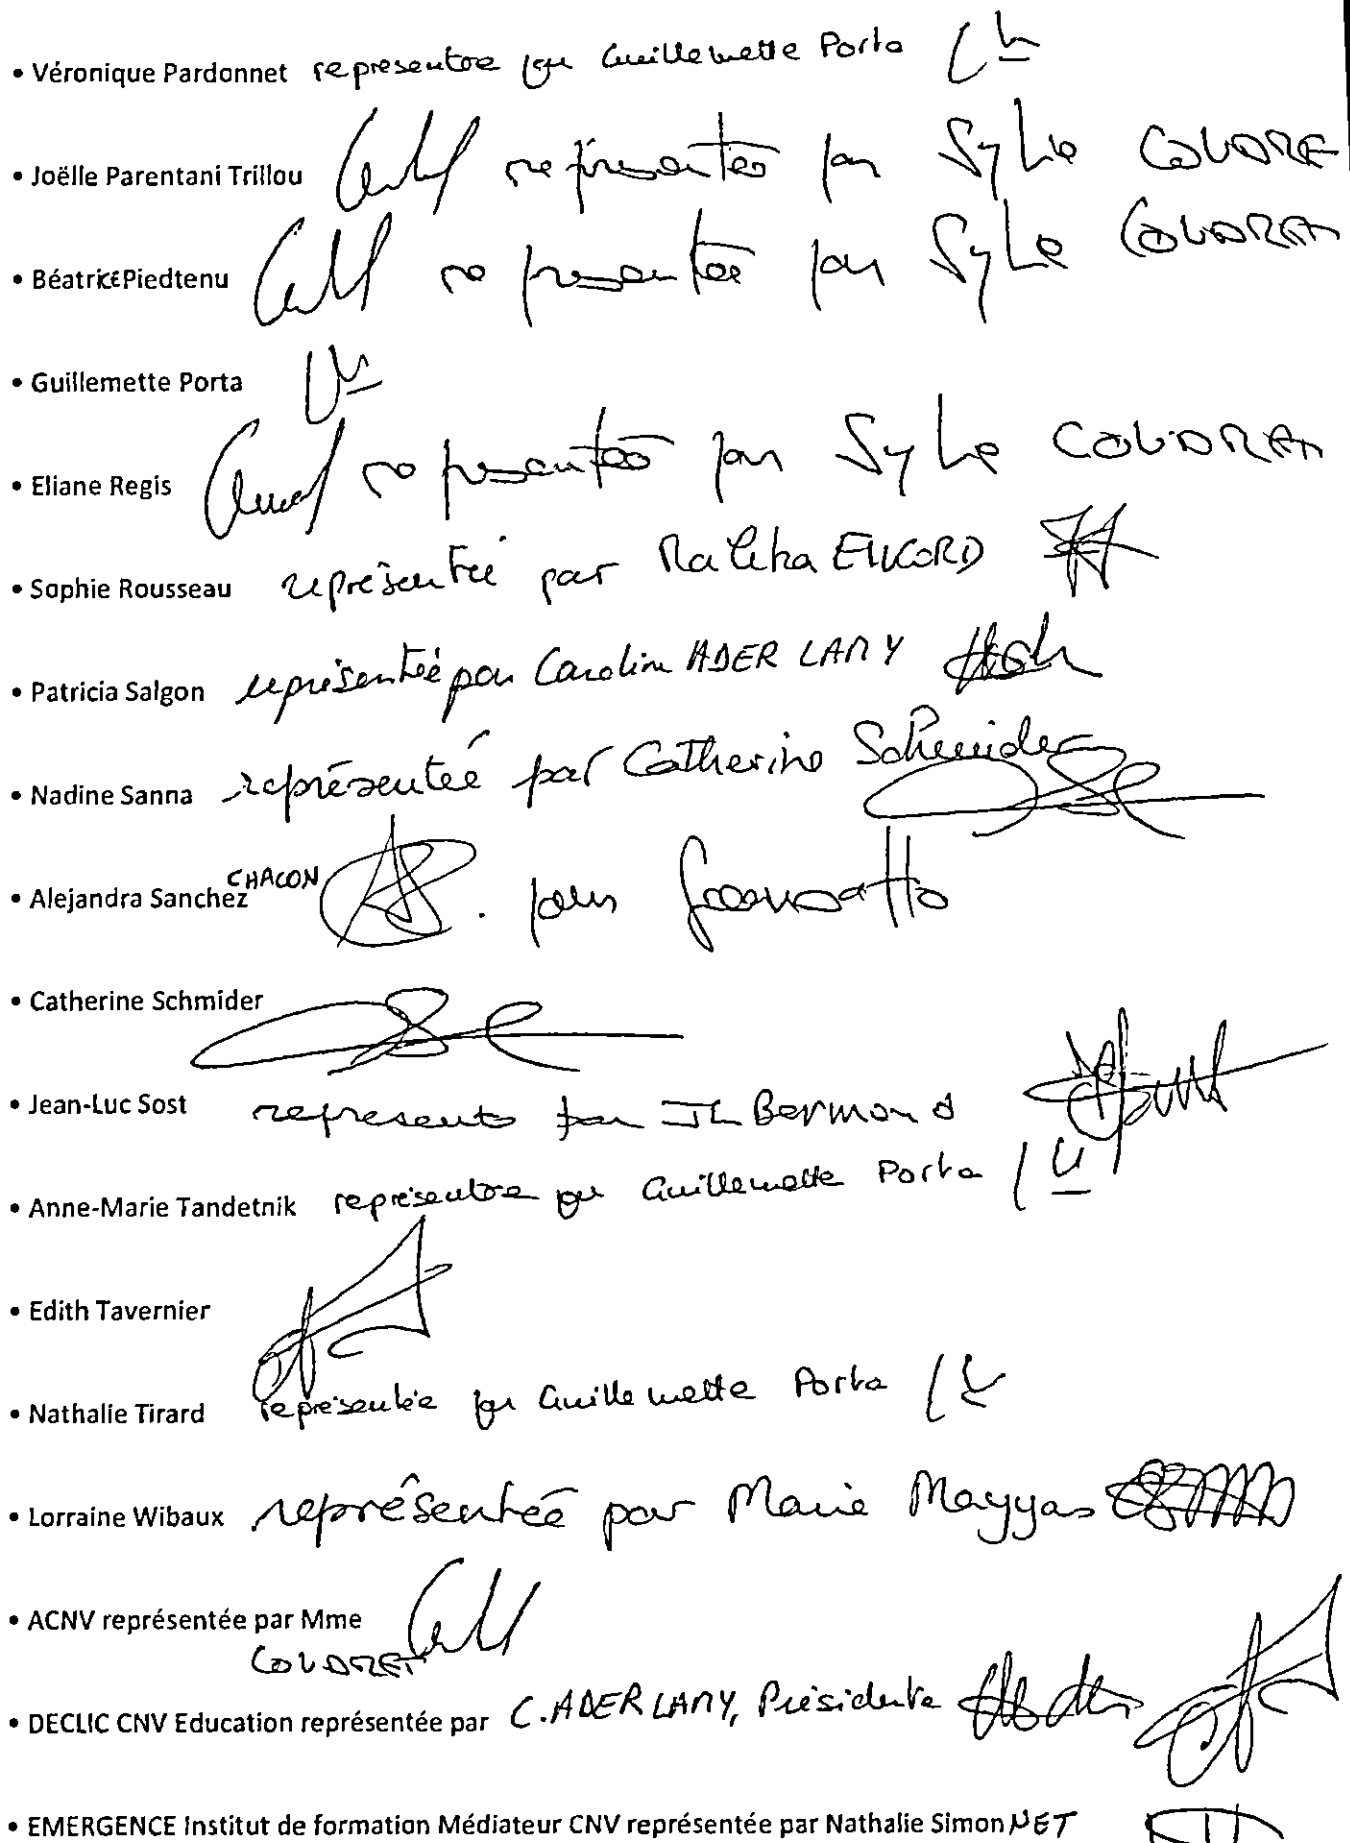 • Véronique Pardonnet représentée par Guillemette Porta
• Joëlle Parentani Trillou représentée par Sylvie COUDRET
• Béatrice Piedtenu représentée par Sylvie COUDRET
• Guillemette Porta
• Eliane Regis représentée par Sylvie COUDRET
• Sophie Rousseau représentée par Malika
• Patricia Salgon représentée par Caroline ADER LAMY
• Nadine Sanna représentée par Catherine Schmider
• Alejandra Sanchez CHACON
• Catherine Schmider
• Jean-Luc Sost représenté par JL Bermond
• Anne-Marie Tandetnik représentée par Guillemette Porta
• Edith Tavernier
• Nathalie Tirard représentée par Guillemette Porta
• Lorraine Wibaux représentée par Marie
• ACNV représentée par Mme
COUDRET
• DECLIC CNV Education représentée par C. ADER LAMY, Présidente
• EMERGENCE Institut de formation Médiateur CNV représentée par Nathalie SimonNET